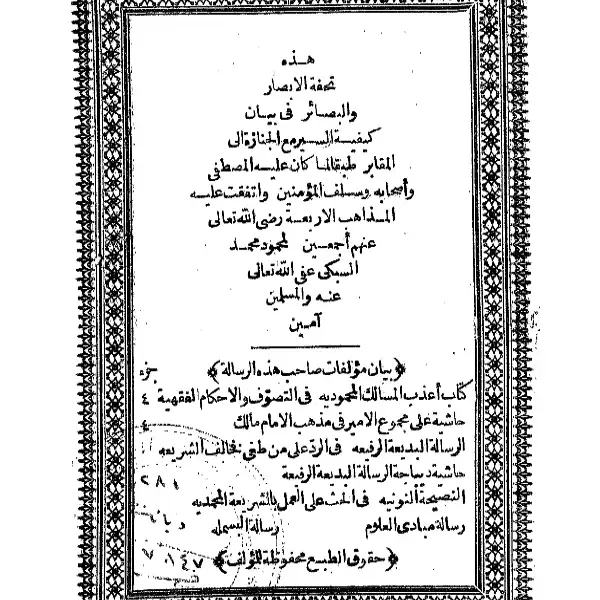 هذه
تحفة الابصار
والبصائر فى بيان
كيفية السير مع الجنازة الى
المقابر طبقا لما كان عليه المصطفى
وأصحابه وسلف المؤمنين واتفقت عليه
المذاهب الاربعة رضى الله تعالى
عنهم أجمعين لمحمود محمد
السبكى عفى الله تعالى
عنه والمسلمين
آمين
﴿بيان مؤلفات صاحب هذه الرسالة﴾ جزء
كتاب أعذب المسالك المحموديه فى التصوف والاحكام الفقهية ٤
حاشية على مجموع الامير فى مذهب الامام مالك ٤
الرسالة البديعة الرفيعه فى الرد على من طغى فخالف الشريعه
حاشية ديباجة الرسالة البديعة الرفيعة
النصيحة النونيه فى الحث على العمل بالشريعة المحمديه
رسالة مبادى العلام رسالة البسمله
﴿حقوق الطبع محفوظة للمؤلف﴾